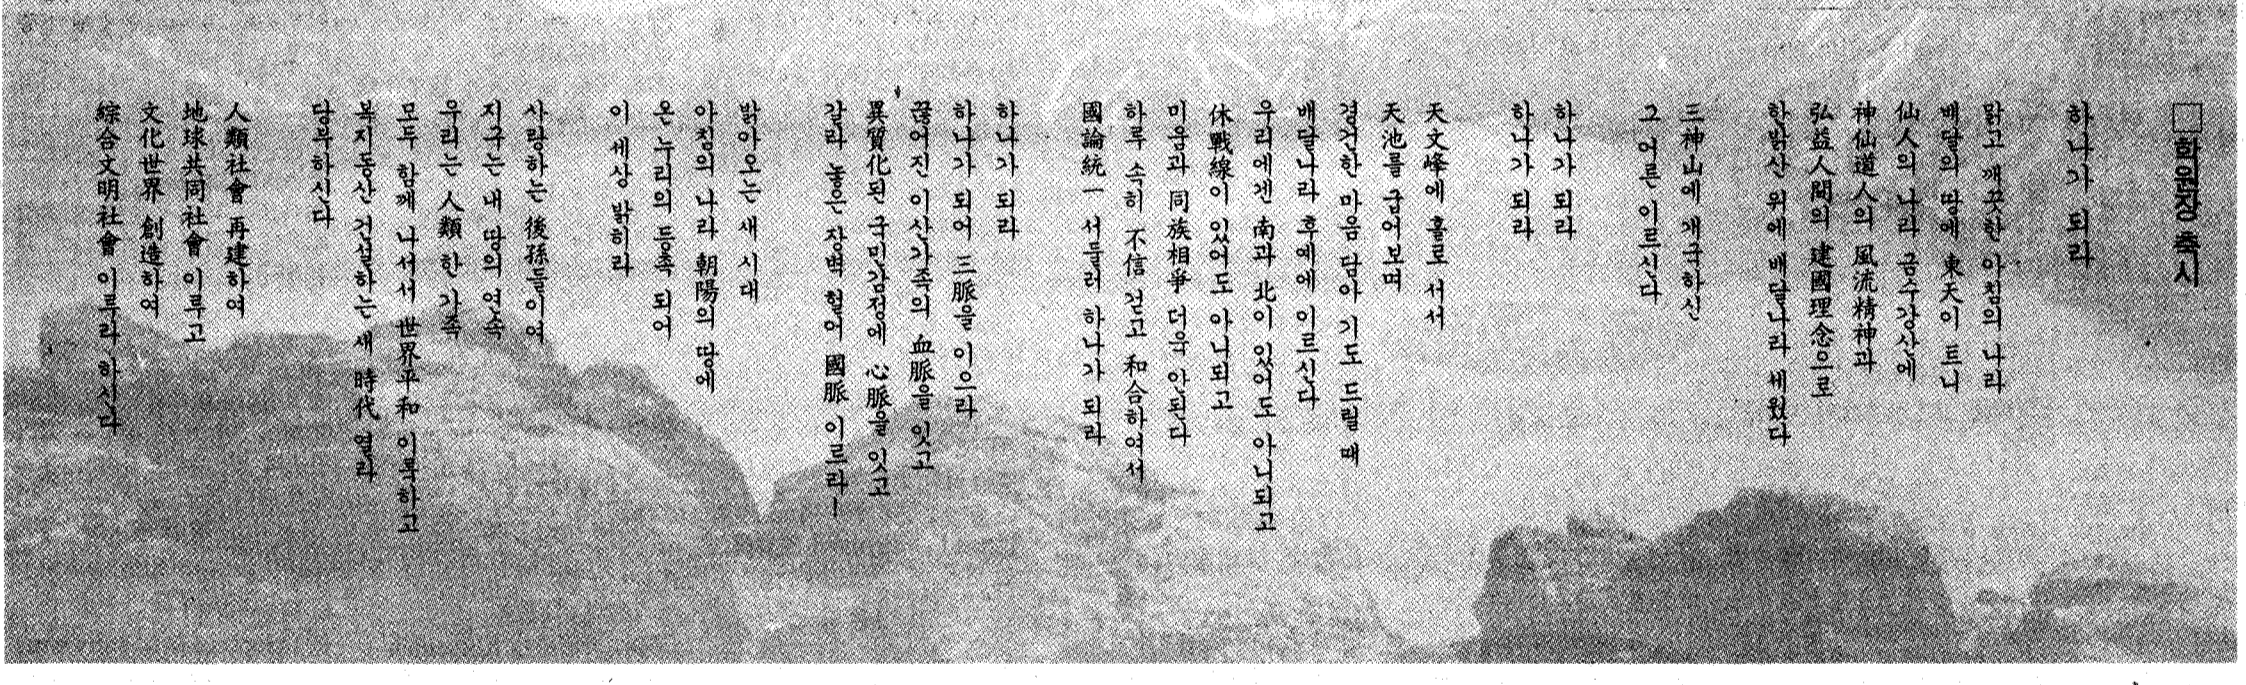 □학원장 축시
하나가 되라
맑고 깨끗한 아침의 나라
배달의 땅에 東天이 트니
仙人의 나라 금수강산에
神仙道人의 風流精神과
弘益人間의 建國理念으로
한밝산 위에 배달나라 세웠다
三神山에 개국하신
그 어른 이르시다
하나가 되라
하나가 되라
天文峰에 홀로 서서
天池를 굽어보며
경건한 마음 담아 기도 드릴 때
배달나라 후예에 이르신다
우리에겐 南과 北이 있어도 아니되고
休戰線이 있어도 아니되고
미움과 同族相爭 더욱 안된다
하루 속히 不信 걷고 和合하여서
國論統一 서둘러 하나가 되라
하나가 되라
하나가 되어 三脈을 이으라
끊어진 이산가족의 血脈을 잇고
異質化된 국민감정에 心脈을 잇고
갈라 놓은 장벽 헐어 國脈 이르라—
밝아오는 새 시대
아침의 나라 朝陽의 땅에
온 누리의 등촉 되어
이 세상 밝히라
사랑하는 後孫들이여
지구는 내 땅의 연속
우리는 人類 한 가족
모두 함께 나서서 世界平和 이룩하고
복지동산 건설하는 새 時代 열라
당부하신다
人類社會 再建하여
地球共同社會 이루고
文化世界 創造하여
綜合文明社會 이루라 하시다